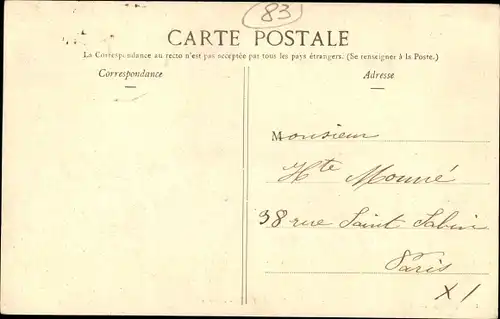 83
CARTE POSTALE
La Correspondance au recto n'est pas acceptée par tous les pays étrangers. (Se renseigner à la Poste.)
Correspondance
Adresse
Monsieur
Hte Mouné
38 rue Saint Sabin
Paris
X1